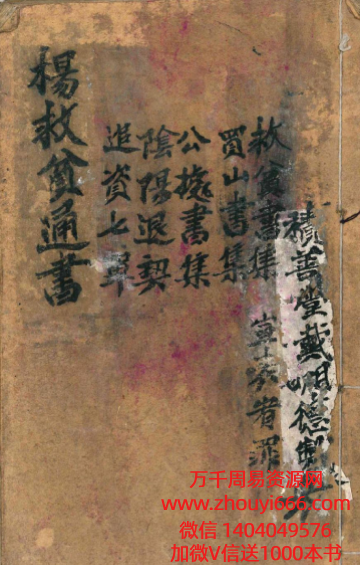 積善堂戴明德
救貧書集
買山書集
公據書集
陰陽退契
資七单
楊救貧通書
万千周易资源网
www.zhouyi666.com
微信 1404049576
加微V信送1000本书